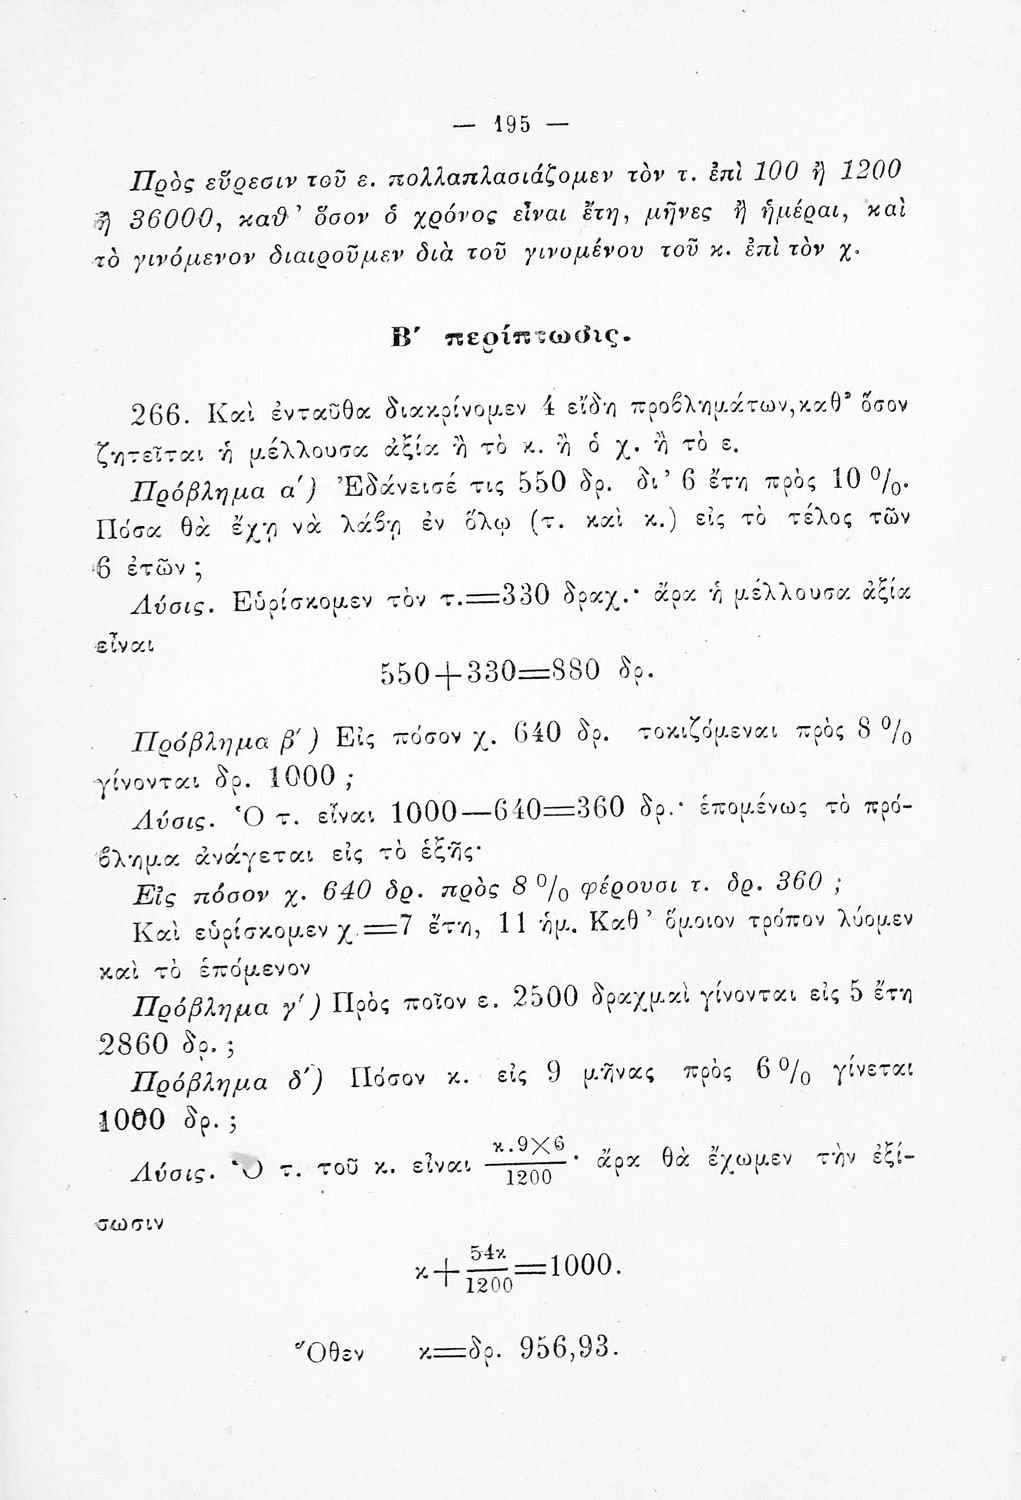 — 195 —
Πρὸς εὕρεσιν τοῦ ε. πολλαπλασιάζομεν τὸν τ. ἐπὶ 100 ἢ 1200
ἢ 36000, καθ’ ὅσον ὁ χρόνος εἶναι ἔτη, μῆνες ἢ ἡμέραι, καὶ
τὸ γινόμενον διαιροῦμεν διὰ τοῦ γινομένου τοῦ κ. ἐπὶ τὸν χ.
Β′ περίπτωσις.
266. Καὶ ἐνταῦθα διακρίνομεν 4 εἴδη προβλημάτων, καθ’ ὅσον
ζητεῖται ἡ μέλλουσα ἀξία ἢ τὸ κ. ἢ ὁ χ. ἢ τὸ ε.
Πρόβλημα α′) Ἐδάνεισέ τις 550 δρ. δι’ 6 ἔτη πρὸς 10 %.
Πόσα θὰ ἔχῃ νὰ λάβῃ ἐν ὅλῳ (τ. καὶ κ.) εἰς τὸ τέλος τῶν
6 ἐτῶν ;
Λύσις. Εὑρίσκομεν τὸν τ.=330 δραχ.· ἄρα ἡ μέλλουσα ἀξία
εἶναι
550+330=880 δρ.
Πρόβλημα β′) Εἰς πόσον χ. 640 δρ. τοκιζόμεναι πρὸς 8 %
γίνονται δρ. 1000 ;
Λύσις. Ὁ τ. εἶναι 1000—640=360 δρ.· ἑπομένως τὸ πρό-
βλημα ἀνάγεται εἰς τὸ ἑξῆς·
Εἰς πόσον χ. 640 δρ. πρὸς 8 % φέρουσι τ. δρ. 360 ;
Καὶ εὑρίσκομεν χ.=7 ἔτη, 11 ἡμ. Καθ’ ὅμοιον τρόπον λύομεν
καὶ τὸ ἑπόμενον
Πρόβλημα γ′) Πρὸς ποῖον ε. 2500 δραχμαὶ γίνονται εἰς 5 ἔτη
2860 δρ. ;
Πρόβλημα δ′) Πόσον κ. εἰς 9 μῆνας πρὸς 6 % γίνεται
1000 δρ. ;
Λύσις. Ὁ τ. τοῦ κ. εἶναι κ.9×6/1200 · ἄρα θὰ ἔχωμεν τὴν ἐξί-
σωσιν
κ+54κ/1200=1000.
Ὅθεν κ=δρ. 956,93.